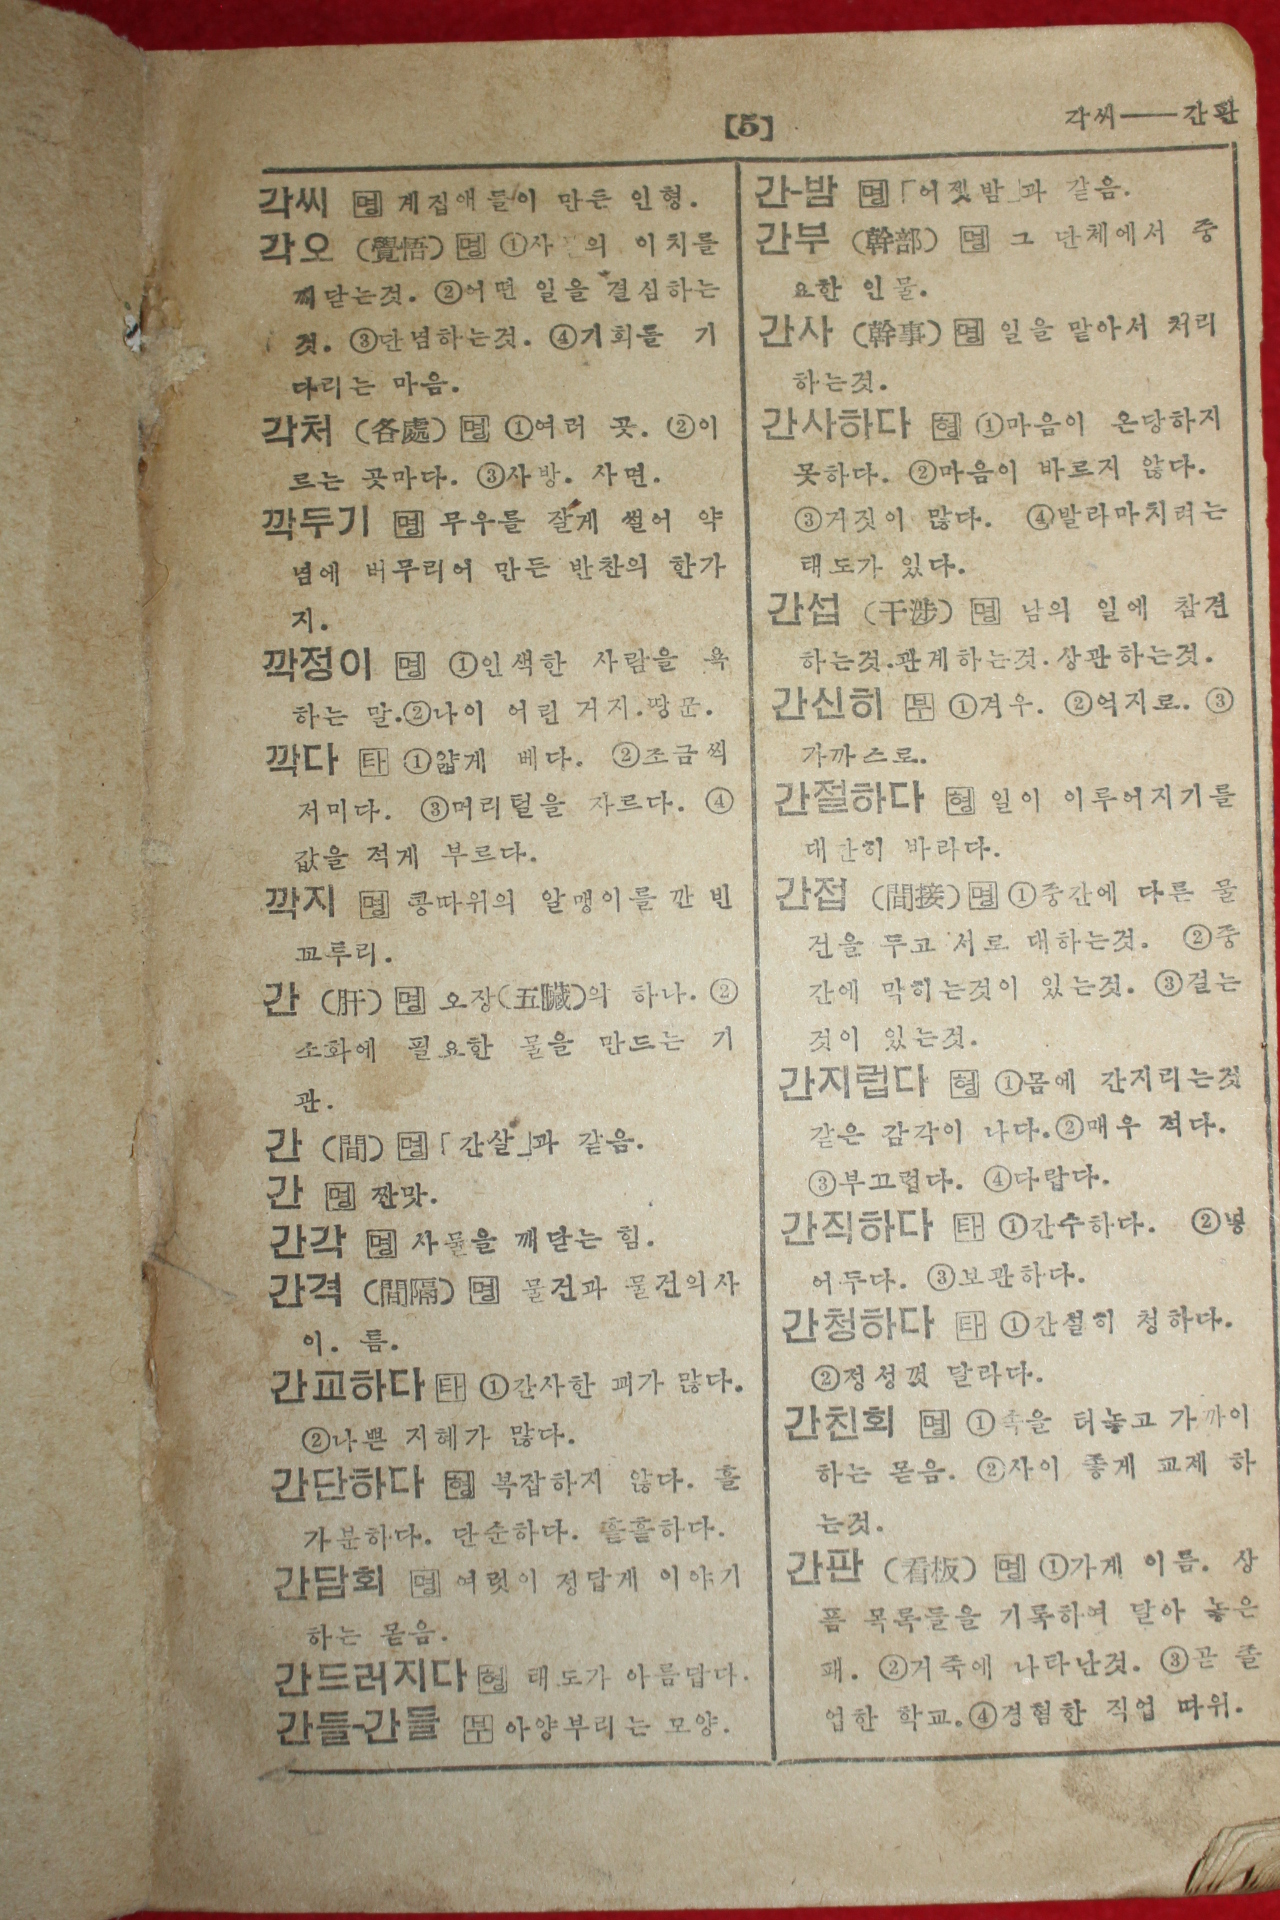 【5】
각씨――간판
각씨 명 계집애들이 만든 인형.
각오 (覺悟) 명 ①사 의 이치를
깨닫는것. ②어떤 일을 결심하는
것. ③단념하는것. ④기회를 기
다리는 마음.
각처 (各處) 명 ①여러 곳. ②이
르는 곳마다. ③사방. 사면.
깍두기 명 무우를 잘게 썰어 약
념에 버무리어 만든 반찬의 한가
지.
깍정이 명 ①인색한 사람을 욕
하는 말.②나이 어린 거지.땅군.
깍다 타 ①얇게 베다. ②조금씩
저미다. ③머리털을 자르다. ④
값을 적게 부르다.
깍지 명 콩따위의 알맹이를 깐 빈
꼬투리.
간 (肝) 명 오장(五臟)의 하나. ②
소화에 필요한 물을 만드는 기
관.
간 (間) 명 「간살」과 같음.
간 명 짠맛.
간각 명 사물을 깨닫는 힘.
간격 (間隔) 명 물건과 물건의사
이. 틈.
간교하다 타 ①간사한 꾀가 많다.
②나쁜 지혜가 많다.
간단하다 형 복잡하지 않다. 홀
가분하다. 단순하다. 홀홀하다.
간담회 명 여럿이 정답게 이야기
하는 몯음.
간드러지다 형 태도가 아름답다.
간들-간들 부 아양부리는 모양.
간-밤 명 「어젯밤」과 같음.
간부 (幹部) 명 그 단체에서 중
요한 인물.
간사 (幹事) 명 일을 맡아서 처리
하는것.
간사하다 형 ①마음이 온당하지
못하다. ②마음이 바르지 않다.
③거짓이 많다. ④발라마치려는
태도가 있다.
간섭 (干涉) 명 남의 일에 참견
하는것.관계하는것.상관하는것.
간신히 부 ①겨우. ②억지로. ③
가까스로.
간절하다 형 일이 이루어지기를
대단히 바라다.
간접 (間接) 명 ①중간에 다른 물
건을 두고 서로 대하는것. ②중
간에 막히는것이 있는것. ③걸는
것이 있는것.
간지럽다 형 ①몸에 간지리는것
같은 감각이 나다.②매우 적다.
③부끄럽다. ④다랍다.
간직하다 타 ①간수하다. ②넣
어두다. ③보관하다.
간청하다 타 ①간절히 청하다.
②정성껏 달라다.
간친회 명 ①속을 터놓고 가까이
하는 몯음. ②사이 좋게 교제 하
는것.
간판 (看板) 명 ①가게 이름. 상
품 목록들을 기록하여 달아 놓은
패. ②거죽에 나라난것. ③곧 졸
업한 학교.④경험한 직업 따위.